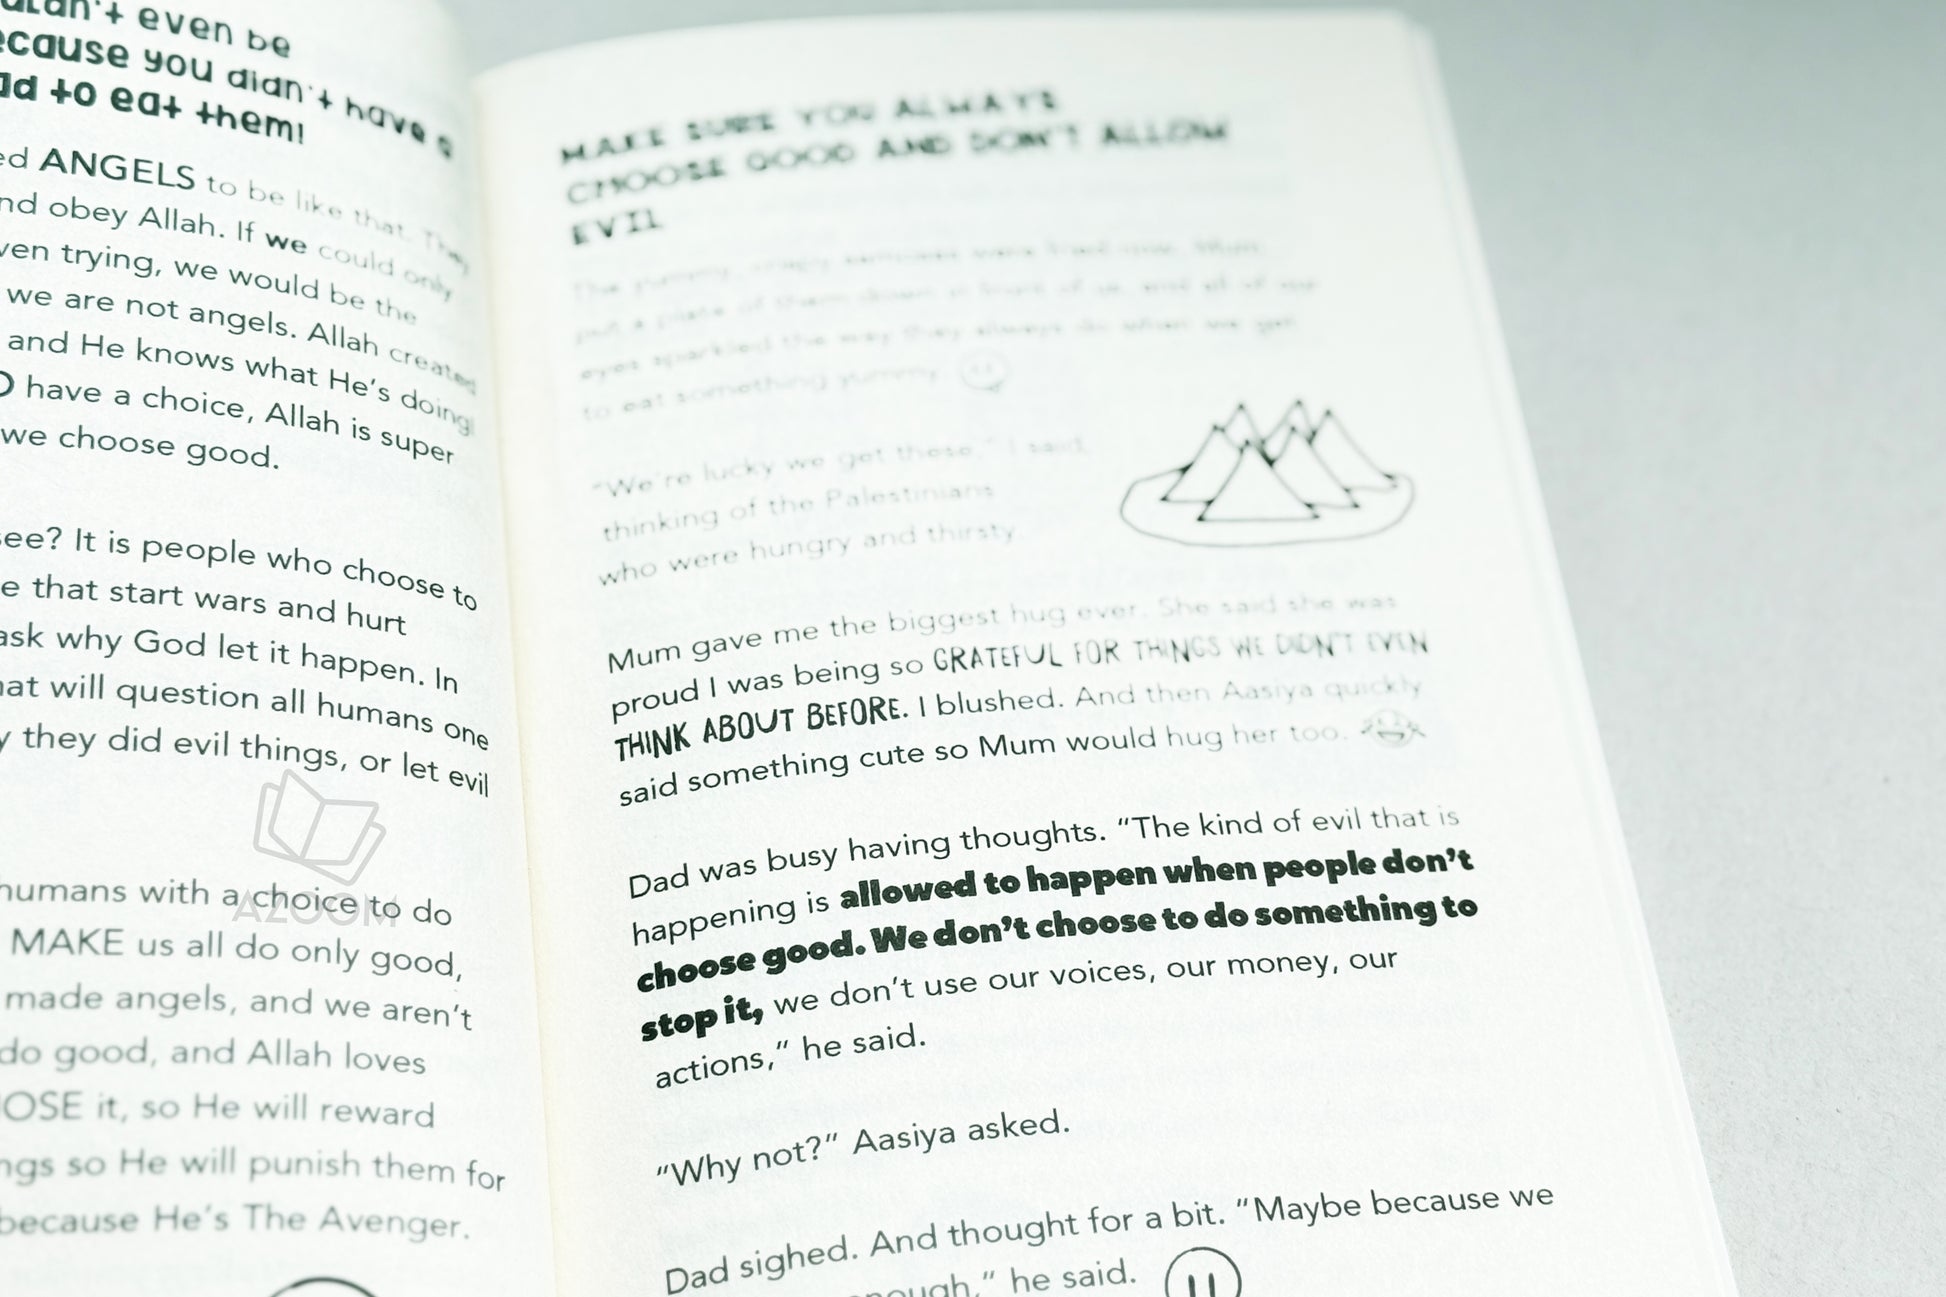 even be
ecause you didn't have a
to eat them!
ed ANGELS to be like that. They
nd obey Allah. If we could only
ven trying, we would be the
we are not angels. Allah created
and He knows what He's doing!
have a choice, Allah is super
we choose good.
see? It is people who choose to
e that start wars and hurt
ask why God let it happen. In
hat will question all humans one
y they did evil things, or let evil
humans with a choice to do
MAKE us all do only good,
made angels, and we aren't
do good, and Allah loves
OSE it, so He will reward
ngs so He will punish them for
because He's The Avenger.
AZOOM
MAKE SURE YOU ALWAYS
CHOOSE GOOD AND DON'T ALLOW
EVIL
The yummy, crispy samosas were fried now. Mum
put a plate of them down in front of us, and all of our
eyes sparkled the way they always do when we get
to eat something yummy.
"We're lucky we get these," I said,
thinking of the Palestinians
who were hungry and thirsty.
Mum gave me the biggest hug ever. She said she was
proud I was being so GRATEFUL FOR THINGS WE DIDN'T EVEN
THINK ABOUT BEFORE. I blushed. And then Aasiya quickly
said something cute so Mum would hug her too.
Dad was busy having thoughts. "The kind of evil that is
happening is allowed to happen when people don't
choose good. We don't choose to do something to
stop it, we don't use our voices, our money, our
actions," he said.
"Why not?" Aasiya asked.
Dad sighed. And thought for a bit. "Maybe because we
enough," he said.